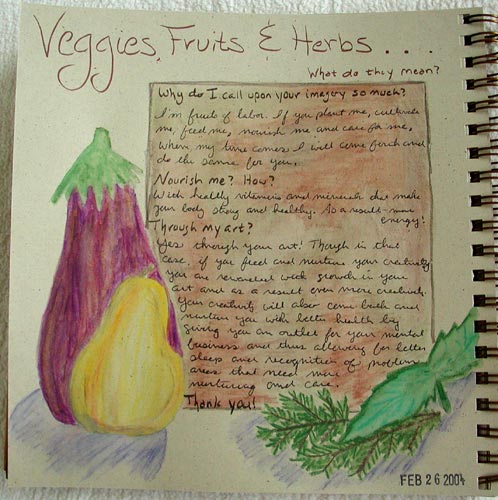 Veggies, Fruits & Herbs . . . .
What do they mean?
Why do I call upon your imagery so much?
I'm fruits of labor. If you plant me, cultivate
me, feed me, nourish me and care for me,
when my time comes I will come forth and
do the same for you.
Nourish me? How?
With healthy vitamins and minerals that make
your body strong and healthy. As a result - more
energy!
Through my art?
Yes through your art! Though in that
case, if you feed and nurture your creativity
you are rewarded with growth in your
art and as a result even more creativity.
Your creativity will also come back and
nurture you with better health by
giving you an outlet for your mental
business and thus allowing for better
sleep and recognition of problem
areas that need more
nurturing and care.
Thank you!
FEB 26 2004